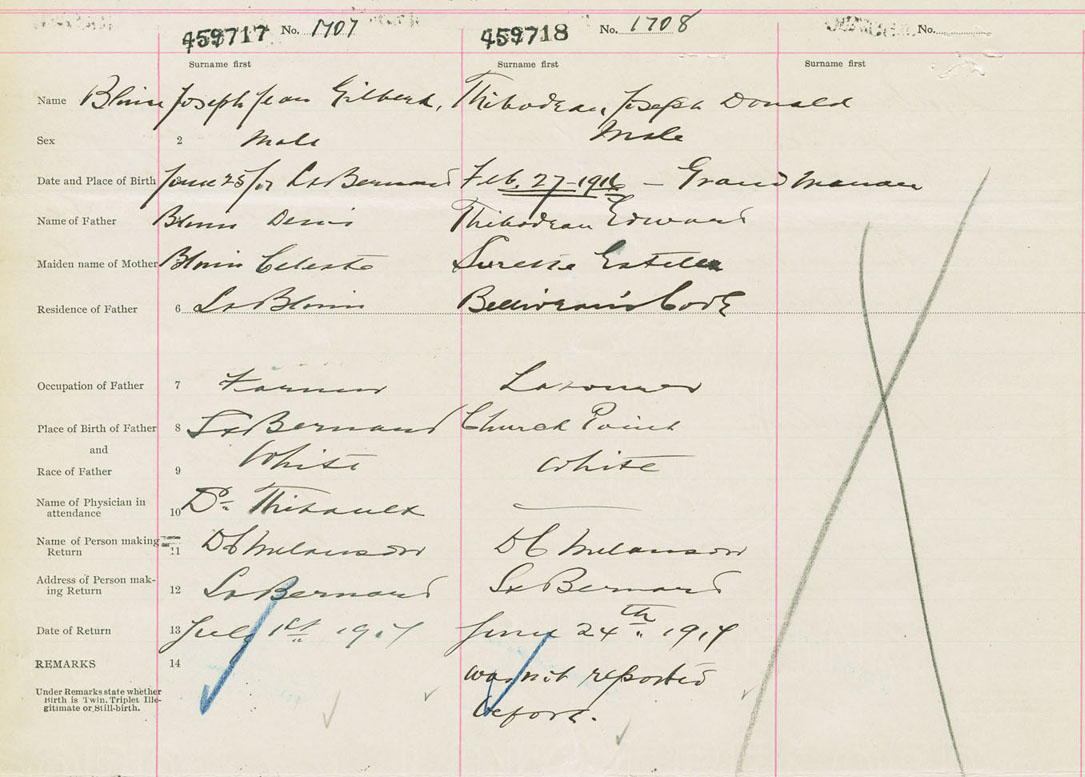 459717 No. 1707 459718 No. 1708 No.
Surname first Surname first Surname first
Name Blinn Joseph Jean Gilbert, Thibodeau, Joseph Donald
Sex 2 Male Male
Date and Place of Birth June 25/17 St Bernard Feb. 27-1916 - Grand Manan
Name of Father Blinn Denis Thibodeau Edward
Maiden name of Mother Blinn Celeste Surette Estelle
Residence of Father 6 St Belliveau's Cove
Occupation of Father 7 Farmer Labourer
Place of Birth of Father 8 St Bernard Church Point
and
Race of Father 9 White White
Name of Physician in
attendance 10 Dr Thibault
Name of Person making
Return 11 D C Melanson D C Melanson
Address of Person mak-
ing Return 12 St Bernard St Bernard
Date of Return 13 July 1st 1917 June 24th 1917
REMARKS 14 was not reported
Under Remarks state whether
Birth is Twin, Triplet Ille-
gitimate or Still-birth. before.